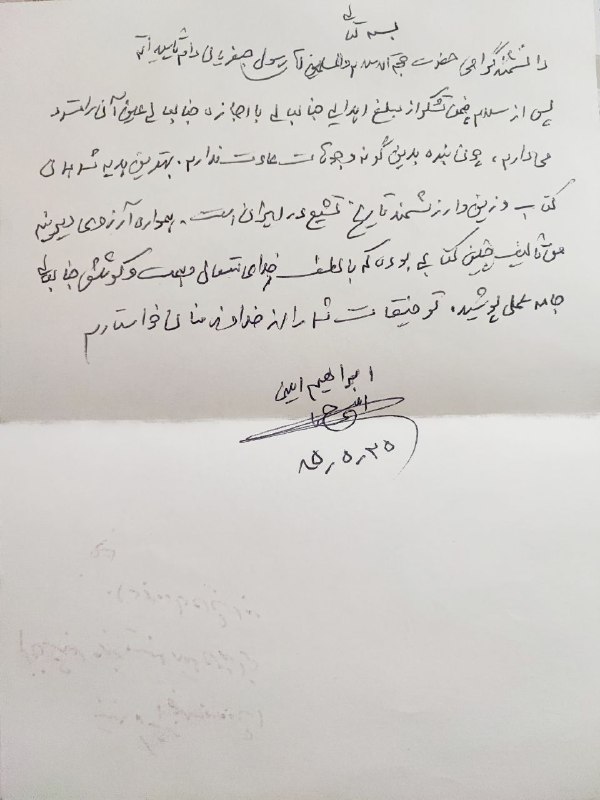 بسمه تعالی
دانشمند گرامی حضرت حجة الاسلام والمسلمین آقای رسول جعفریان دام تاییداته
پس از سلام ضمن تشکر از مبلغ اهدایی جنابعالی با اجازه جنابعالی عین آن را مسترد
می‌دارم، چون بنده بدین گونه وجوهات عادت ندارم. بهترین هدیه شما همان
کتاب وزین و ارزشمند تاریخ تشیع در ایران است. همواره آرزوی دیرینه
من تالیف چنین کتابی بود که با لطف خدای متعال و همت و کوشش جنابعالی
جامه عمل پوشید. توفیقات شما را از خداوند منان خواستارم
ابراهیم امینی
۸۵٫۵٫۲۵